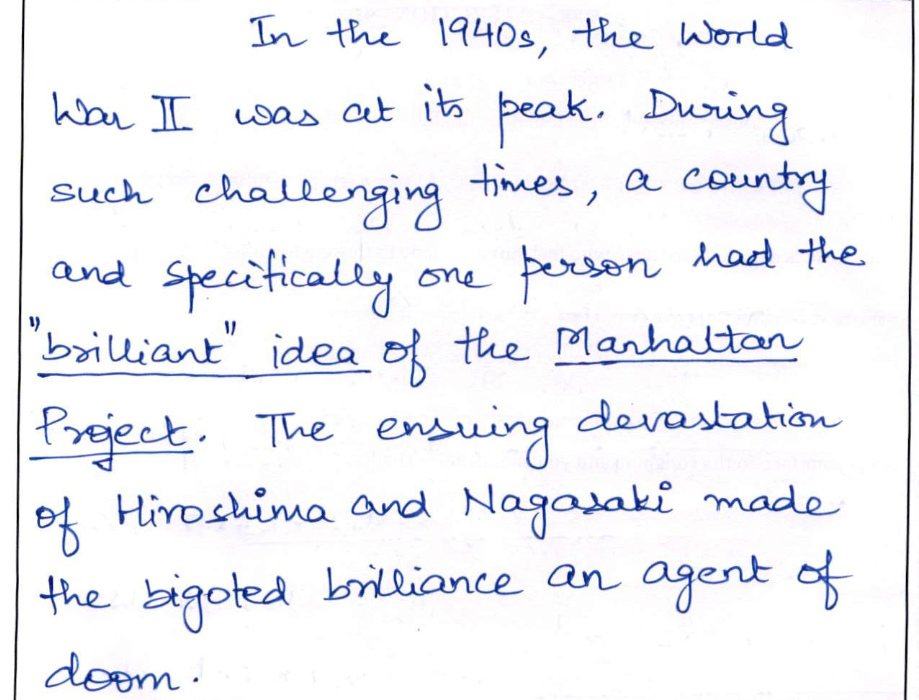 In the 1940s, the World
War II was at its peak. During
such challenging times, a country
and specifically one person had the
"brilliant" idea of the Manhattan
Project. The ensuing devastation
of Hiroshima and Nagasaki made
the bigoted brilliance an agent of
doom.